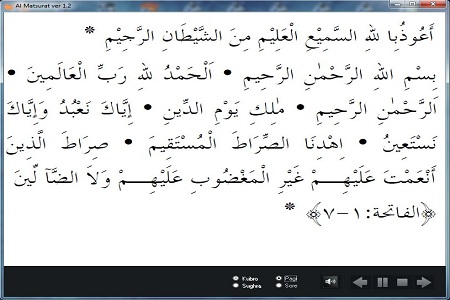 Al Matsurat ver 1.2
أَعُوْذُبِا للهِ السَّمِيْعِ الْعَلِيْمِ مِنَ الشَّيْطَانِ الرَّجِيْمِ *
بِسْمِ اللهِ الرَّحْمٰنِ الرَّحِيمِ • اَلْحَمْدُ للهِ رَبِّ الْعَالَمِينَ •
اَلرَّحْمٰنِ الرَّحِيمِ • مٰلِكِ يَوْمِ الدِّينِ • إِيَّاكَ نَعْبُدُ وَإِيَّاكَ
نَسْتَعِينُ • اِهْدِنَا الصِّرَاطَ الْمُسْتَقِيمَ • صِرَاطَ الَّذِينَ
أَنْعَمْتَ عَلَيْهِـــمْ غَيْرِ الْمَغْضُوبِ عَلَيْهِـــمْ وَلاَ الضَّآ لِّينَ
﴿الفاتحة: ١-٧﴾ *
Kubro Pagi
Sughra Sore